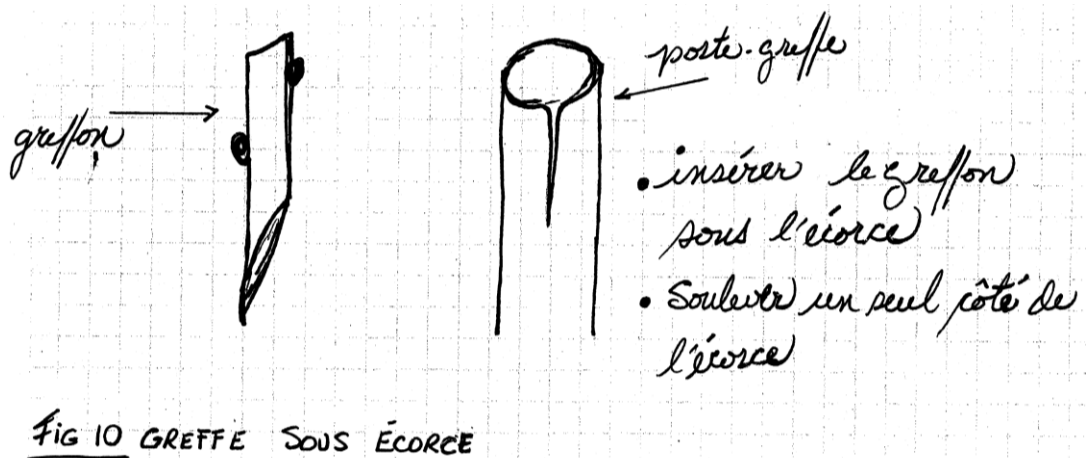 greffon
porte-greffe
• insérer le greffon
sous l'écorce
• Soulever un seul côté de
l'écorce
FIG 10 GREFFE SOUS ÉCORCE